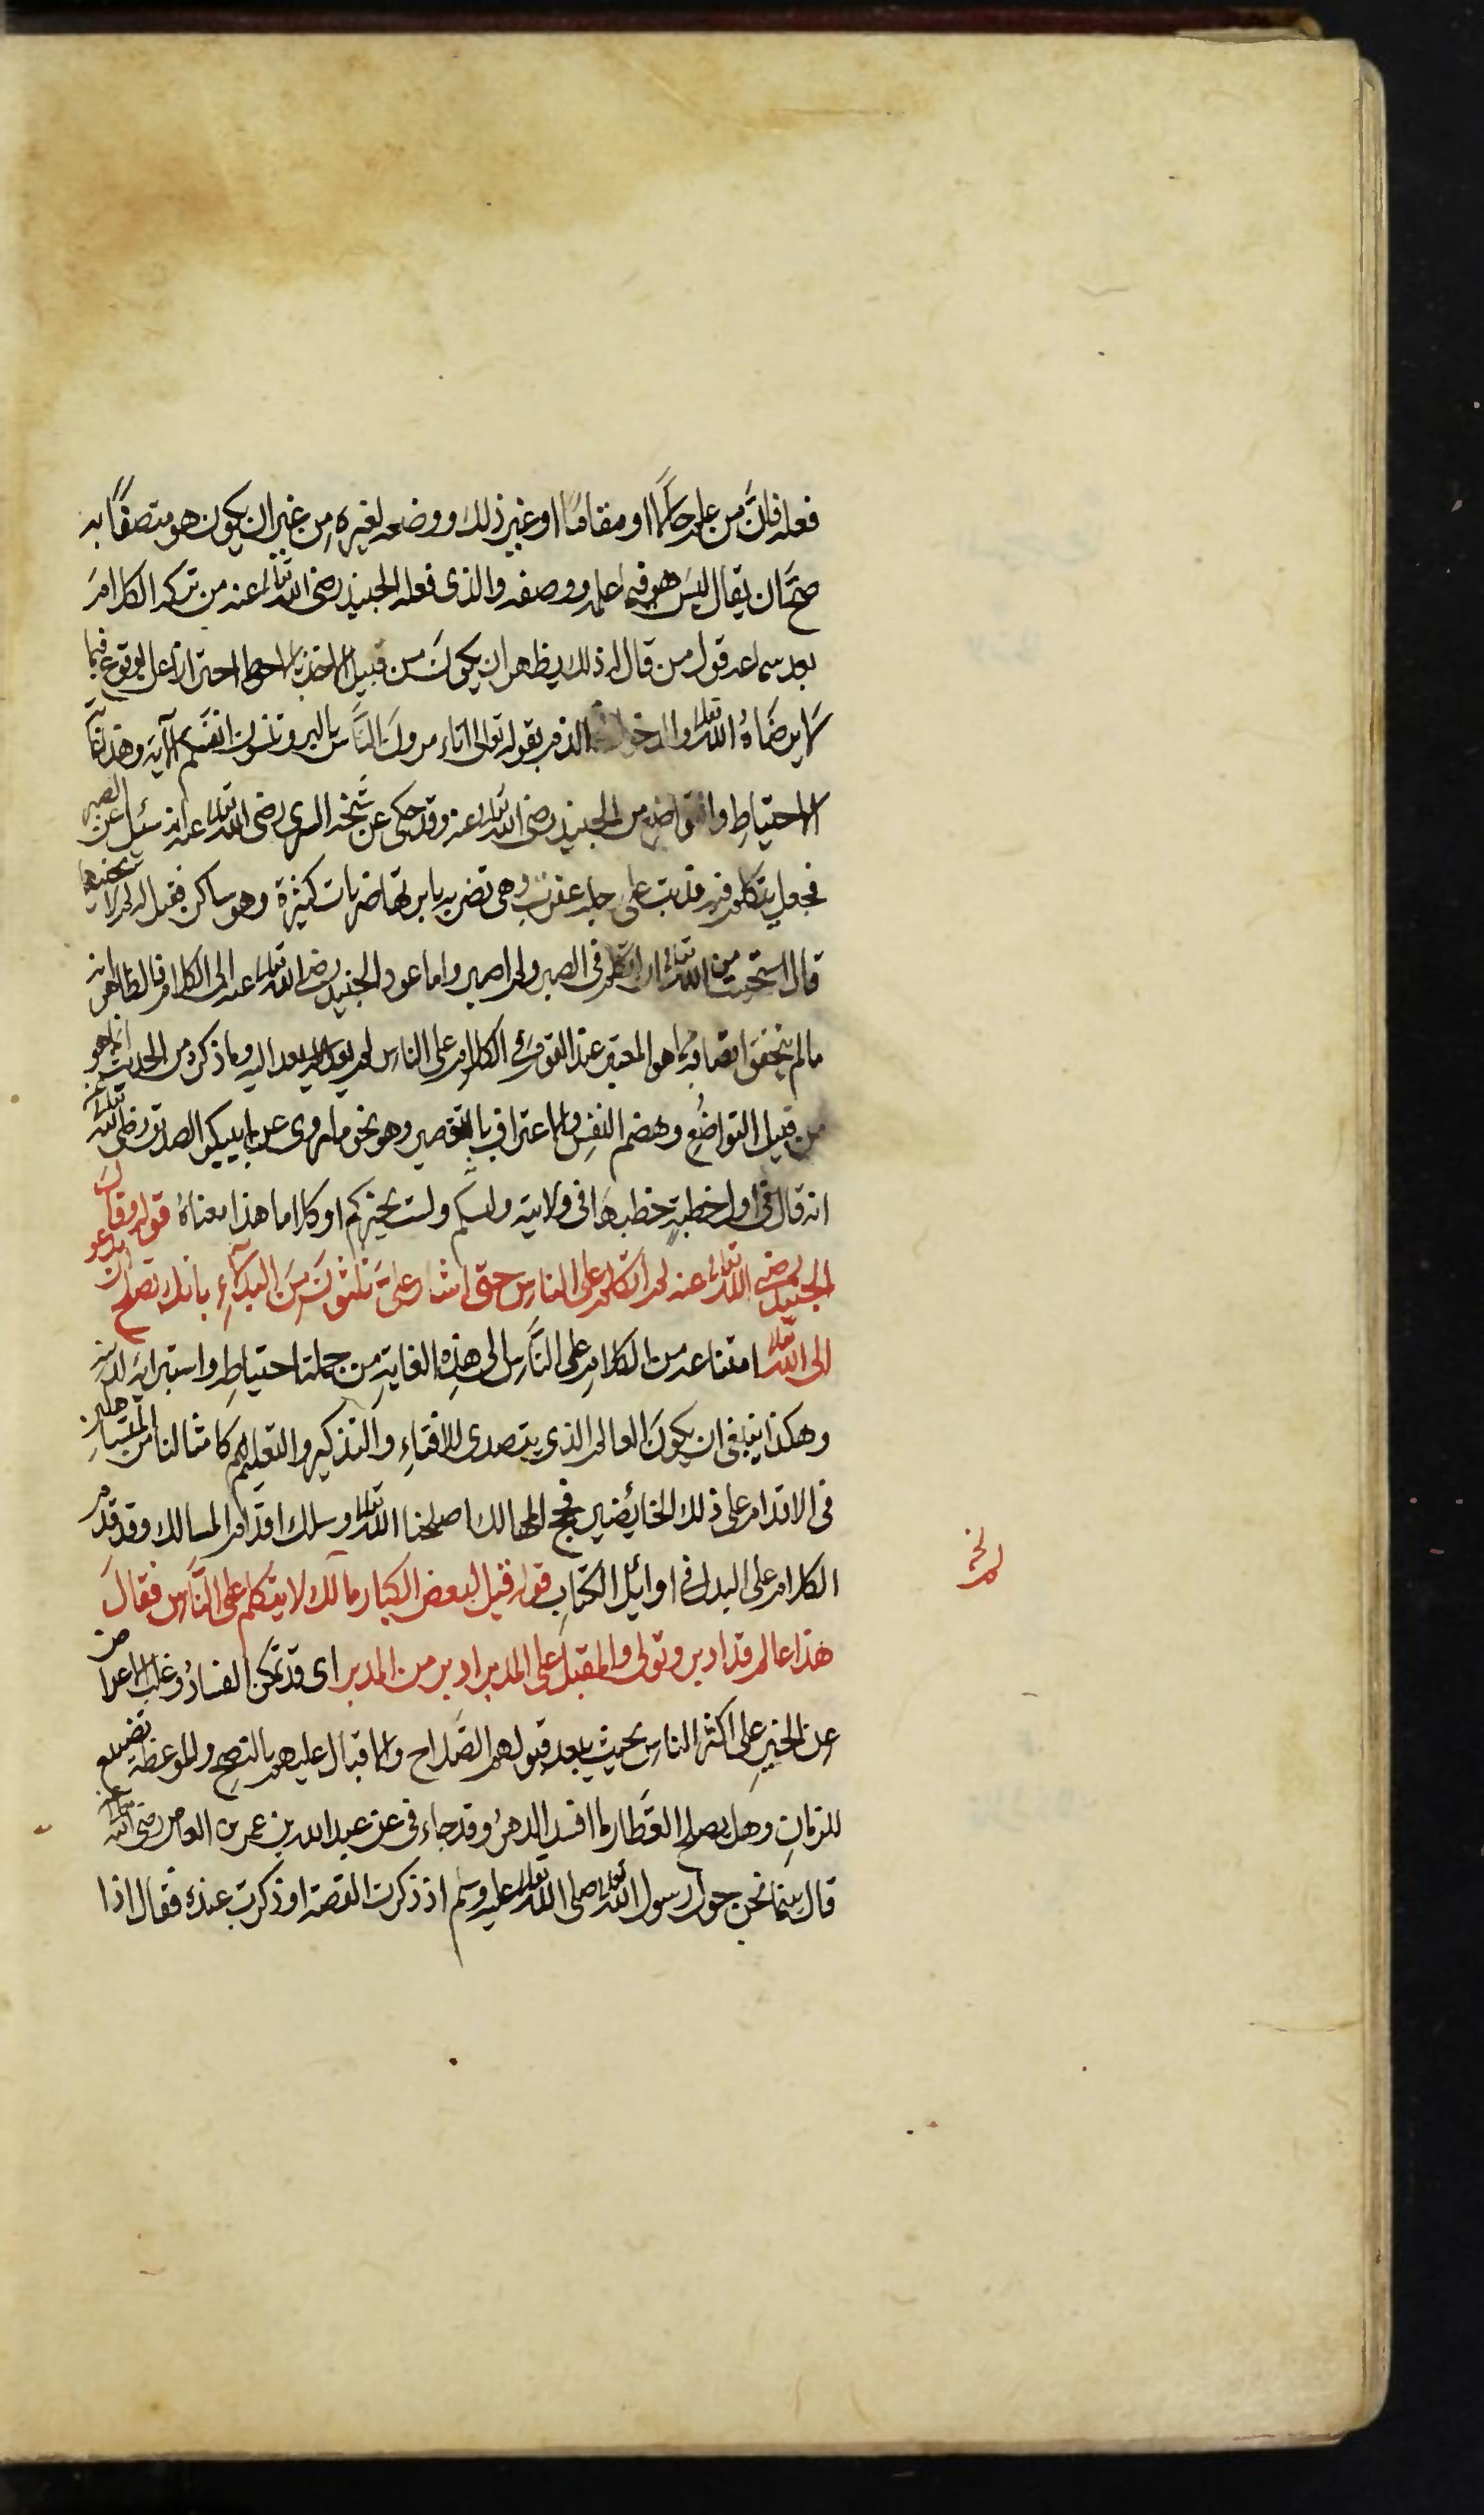 فعله فان من علم حالا او مقاما او غير ذلك ووضعه لغيره من غير ان يكون هو متصفا به
صح ان يقال ليس هو فيما علمه ووصفه والذى فعله الجنيد رضى الله تعالى عنه من تركه الكلام
بعد سماعه قول من قال له ذلك يظهر ان يكون من قبيل الاخذ بالاحوط احترازا عن الوقوع فيما
لا يرضاه الله تعالى والدخول الذم بقوله تعالى اتأمرون الناس بالبر وتنسون انفسكم الآية وهذا
الاحتياط والتواضع من الجنيد رضى الله تعالى عنه وقد حكى عن شيخه السرى رضى الله تعالى عنه انه سئل عن الصبر
فجعل يتكلم فيه فدبت على رجله عقرب وهى تضربه بابرتها ضربات كثيرة وهو ساكن فقيل له لم لا تنحيها
قال استحييت من الله تعالى ان اتكلم فى الصبر ولم اصبر واما عود الجنيد رضى الله تعالى عنه الى الكلام فالظاهر انه
مالم يتحقق اتصافه بما هو المعتبر عند القوم فى الكلام على الناس لم يعد اليه وما ذكره من الحديث انما هو
من قبيل التواضع وهضم النفس والاعتراف بالتقصير وهو نحو ما روى عن ابى بكر الصديق رضى الله تعالى عنه
انه قال فى اول خطبة خطبها فى ولايته وليتكم ولست بخيركم او كلاما هذا معناه قوله وقال
الجنيد رضى الله تعالى عنه لم اتكلم على الناس حتى اشار على ثلثون من البدلاء بانك تصلح ان تدعو
الى الله تعالى امتناعه من الكلام على الناس الى هذه الغاية من جملة احتياطه واستبرائه لدينه
وهكذا ينبغى ان يكون العالم الذى يتصدى للافتاء والتذكير والتعليم لا كامثالنا من المتساهلين
فى الاقدام على ذلك الخائضين لجج المهالك اصلحنا الله تعالى وسلك اقدام المسالك وقد قدم
الكلام على البدل فى اوائل الكتاب قوله قيل لبعض الكبار مالك لا تتكلم على الناس فقال
هذا عالم قد ادبر وتولى والمقبل على المدبر ادبر من المدبر اى قد تمكن الفساد وغلب الاعراض
عن الخير على اكثر الناس بحيث يبعد قبولهم الصلاح والاقبال عليهم بالنصح والموعظة تضييع
للزمان وهل يصلح العطار ما افسد الدهر وقد جاء فى عن عبد الله بن عمر بن العاص رضى الله تعالى عنه
قال بينما نحن حول رسول الله تعالى صلى الله تعالى عليه وسلم اذ ذكرت القصة او ذكرت عنده فقال اذا